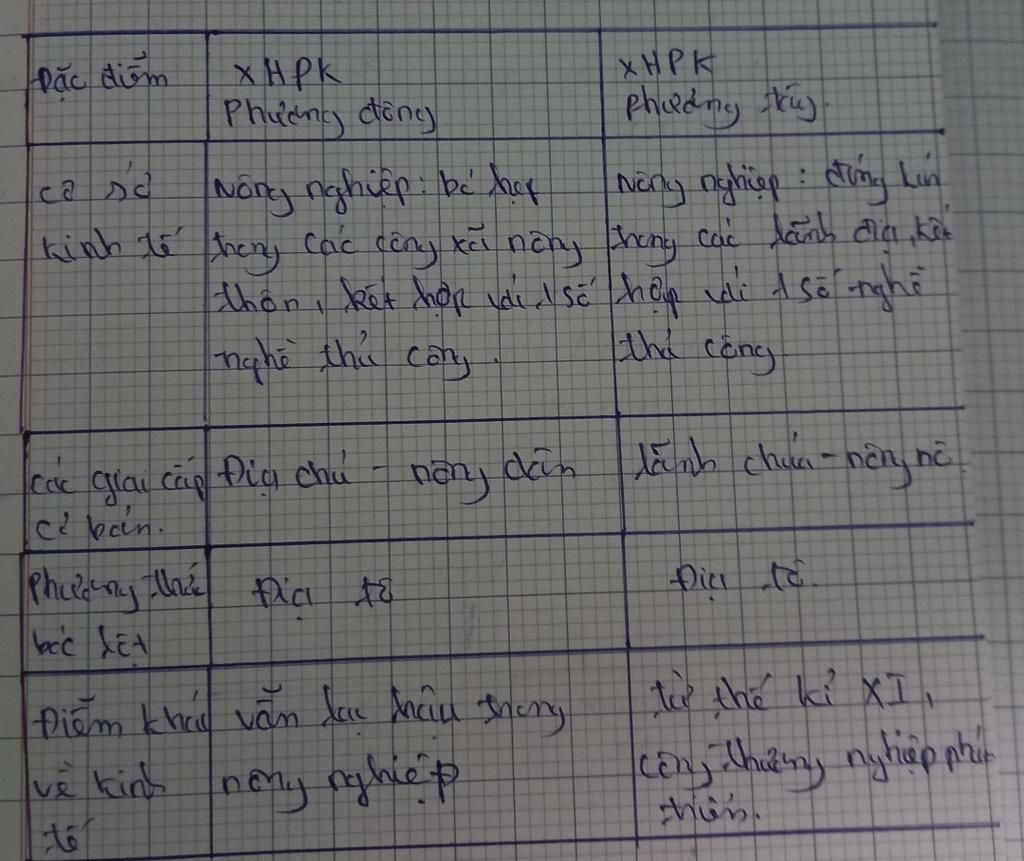 Đặc điểm
XHPK
Phương đông
XHPK
phương tây.
cơ sở
kinh tế
Nông nghiệp: bó hẹp
trong các công xã nông
thôn, kết hợp với 1 số
nghề thủ công.
Nông nghiệp: đóng kín
trong các lãnh địa, kết
hợp với 1 số nghề
thủ công
các giai cấp
cơ bản.
Địa chủ - nông dân
lãnh chúa - nông nô
Phương thức
bóc lột
Địa tô
Địa tô.
Điểm khác
về kinh
tế
vẫn lạc hậu trong
nông nghiệp
từ thế kỉ XI,
công thương nghiệp phát
triển.